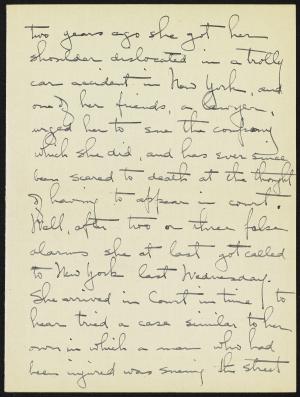 two years ago she got her
shoulder dislocated in a trolly
car accident in New York, and
one of her friends, a lawyer,
urged her to sue the company
which she did, and has ever since
been scared to death at the thought
of having to appear in court.
Well, after two or three false
alarms she at last got called
to New York last Wednesday.
She arrived in Court in time to
hear tried a case similar to her
own in which a man who had
been injured was suing the street